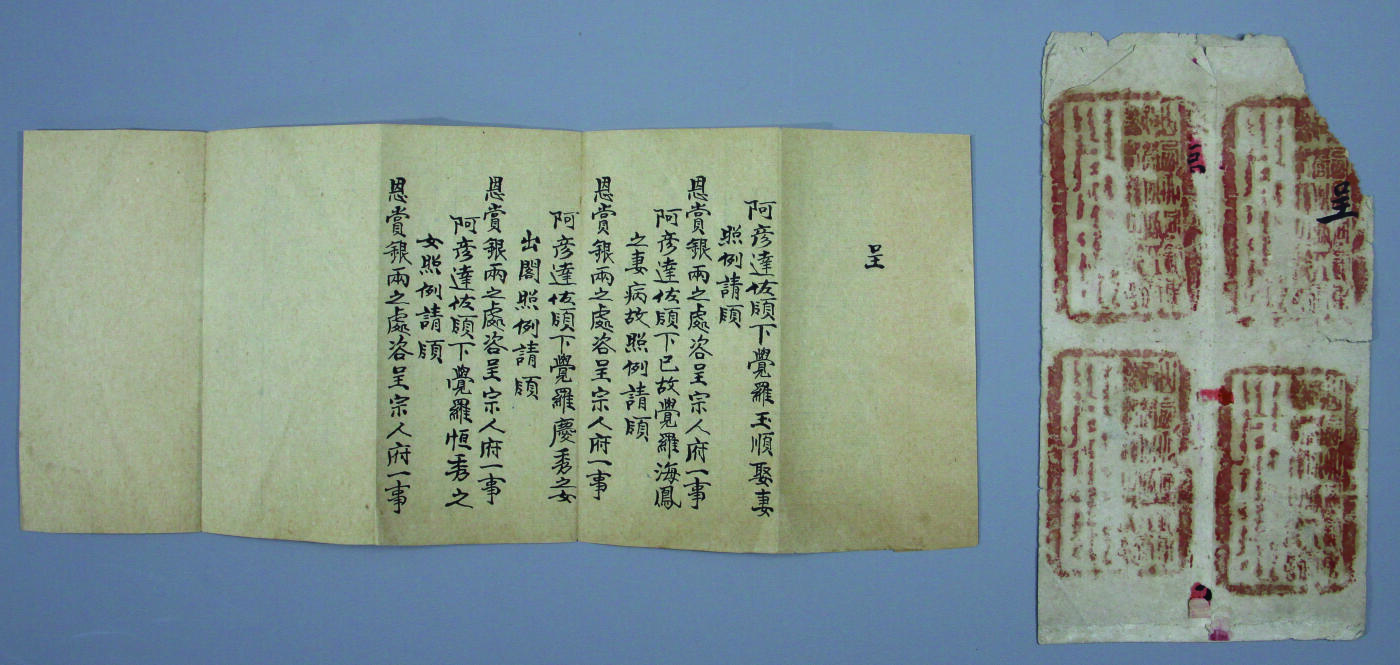 呈
阿彥達佐領下覺羅玉順娶妻
照例請領
恩賞銀兩之處咨呈宗人府一事
阿彥達佐領下已故覺羅海鳳
之妻病故照例請領
恩賞銀兩之處咨呈宗人府一事
阿彥達佐領下覺羅慶秀之女
出閣照例請領
恩賞銀兩之處咨呈宗人府一事
阿彥達佐領下覺羅恒秀之
女照例請領
恩賞銀兩之處咨呈宗人府一事
呈